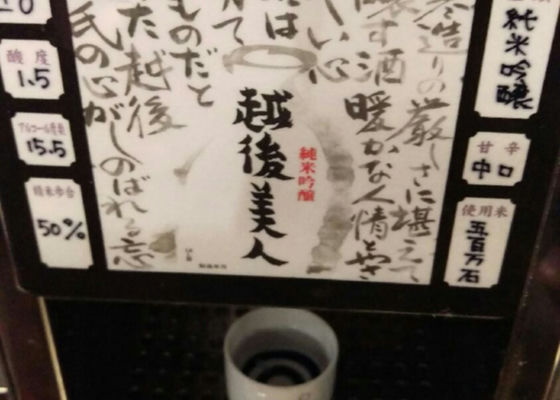 純米吟醸
甘辛
中口
使用米
五百万石
造りの厳しさに堪えて
醸す酒 暖かな人情とやさ
しい心
は
ものだと
た越後
民の心がしのばれる
純米吟醸
越後美人
製造年月
±0
酸度
1.5
15.5
精米歩合
50%